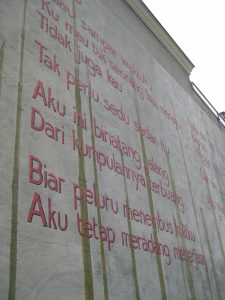 Kalau sampai waktuku
Ku mau tak seorang kan merayu
Tidak juga kau
Tak perlu sedu sedan itu
Aku ini binatang jalang
Dari kumpulannya terbuang
Biar peluru menembus kulitku
Aku tetap meradang menerjang